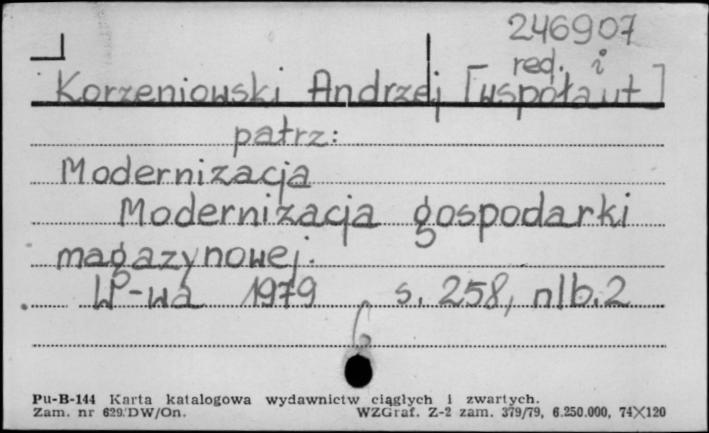 246907
red. i
Korzeniowski Andrzej [współaut]
patrz:
Modernizacja
Modernizacja gospodarki
magazynowej.
W-wa 1979 s. 258, nlb. 2
Pu-B-144 Karta katalogowa wydawnictw ciągłych i zwartych.
Zam. nr 629/DW/On. WZGraf. Z-2 zam. 379/79, 6.250.000, 74×120